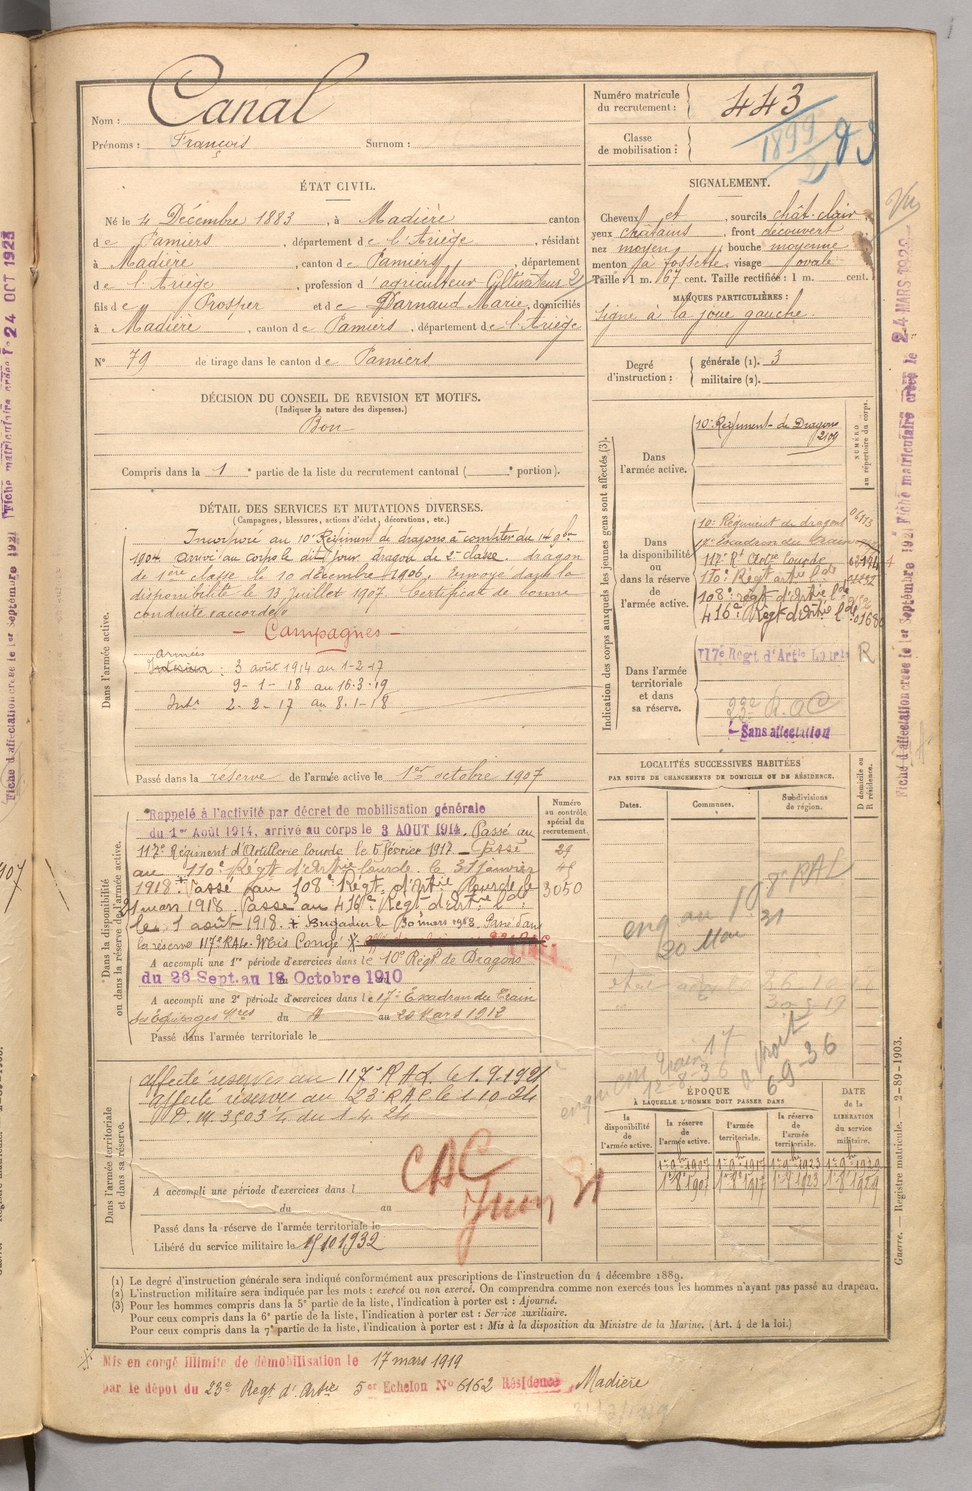 Nom : Canal
Prénoms : François Surnom :
ÉTAT CIVIL.
Né le 4 Décembre 1883, à Madière canton
de Pamiers, département de l'Ariège, résidant
à Madière, canton de Pamiers, département
de l'Ariège, profession d'agriculteur Cultivateur
fils de Prosper et de Darnaud Marie, domiciliés
à Madière, canton de Pamiers, département de l'Ariège
N° 79 de tirage dans le canton de Pamiers
DÉCISION DU CONSEIL DE REVISION ET MOTIFS.
(Indiquer la nature des dispenses.)
Bon
Compris dans la 1e partie de la liste du recrutement cantonal ( e portion).
DÉTAIL DES SERVICES ET MUTATIONS DIVERSES.
(Campagnes, blessures, actions d'éclat, décorations, etc.)
Dans l'armée active.
Incorporé au 10e Régiment de dragons à compter du 14 9bre
1904 arrivé au corps le dit jour dragon de 2e classe. dragon
de 1ère classe le 10 décembre 1906. Envoyé dans la
disponibilité le 13 Juillet 1907. Certificat de bonne
conduite accordé
- Campagnes -
armées
Intérieur : 3 août 1914 au 1-2-17
9-1-18 au 16.3.19
Intr 2-2-17 au 8-1-18
Passé dans la réserve de l'armée active le 1er octobre 1907
Dans la disponibilité ou dans la réserve de l'armée active.
Numéro au contrôle spécial du recrutement.
Rappelé à l'activité par décret de mobilisation générale
du 1er Août 1914, arrivé au corps le 3 AOUT 1914. Passé au
117e Régiment d'Artillerie lourde le 5 février 1917 _ Passé 29
au 110e Régt d'Artie lourde. le 31 janvier
1918. Passé au 108e Régt d'Artie lourde le 3050
21 mars 1918. Passé au 416e Régt d'artie lde
le 1 août 1918. + Brigadier le
la réserve 117e RAL. Mis Congé X
A accompli une 1re période d'exercices dans le 10e Régt de Dragons
du 26 Sept. au 18 Octobre 1910
A accompli une 2e période d'exercices dans le 17e Escadron du Train
des Equipages Mres du 4 au 20 Mars 1912
Passé dans l'armée territoriale le
Dans l'armée territoriale et dans sa réserve.
affecté réserves au 117e RAL le 1.9.1921
affecté réserves au 23 RAC le 1-10-24
D.M. 3503/4 du 1.4.24
CAC
Juin 31
A accompli une période d'exercices dans l
du au
Passé dans la réserve de l'armée territoriale le
Libéré du service militaire le 15 10 1932
Numéro matricule du recrutement : 443
Classe de mobilisation : 1899
SIGNALEMENT.
Cheveux et, sourcils chât. clair
yeux châtains, front découvert
nez moyen, bouche moyenne
menton à fossette, visage ovale
Taille : 1 m. 67 cent. Taille rectifiée : 1 m. cent.
MARQUES PARTICULIÈRES :
Signe à la joue gauche.
Degré d'instruction : générale (1). 3
militaire (2).
Indication des corps auxquels les jeunes gens sont affectés (3).
NUMÉRO au répertoire du corps.
Dans l'armée active. 10e Régiment de Dragons
2109
Dans la disponibilité ou dans la réserve de l'armée active.
10e Régiment de dragons
17e Escadron du Train
117e Rt Artie lourde
110e Régt artie lde
108e régt d'Artie lde
416e Régt d'Artie lde
Dans l'armée territoriale et dans sa réserve.
117e Régt d'Artie Lourde R
23e R.A.C
Sans affectation
LOCALITÉS SUCCESSIVES HABITÉES
PAR SUITE DE CHANGEMENTS DE DOMICILE OU DE RÉSIDENCE.
D domicile ou R résidence.
Dates. Communes. Subdivisions de région.
eng au 108e RAL
20 Mai 31
12-8-36
6-9-36
ÉPOQUE
À LAQUELLE L'HOMME DOIT PASSER DANS
DATE de la LIBÉRATION du service militaire.
la disponibilité de l'armée active. la réserve de l'armée active. l'armée territoriale. la réserve de l'armée territoriale.
1er 9bre 1907 1er 9bre 1917 1er 9bre 1923 1er 9bre 1929
1er 8bre 1907 1er 8bre 1917 1er 8bre 1923 1er 8bre 1929
(1) Le degré d'instruction générale sera indiqué conformément aux prescriptions de l'instruction du 4 décembre 1889.
(2) L'instruction militaire sera indiquée par les mots : exercé ou non exercé. On comprendra comme non exercés tous les hommes n'ayant pas passé au drapeau.
(3) Pour les hommes compris dans la 5e partie de la liste, l'indication à porter est : Ajourné.
Pour ceux compris dans la 6e partie de la liste, l'indication à porter est : Service auxiliaire.
Pour ceux compris dans la 7e partie de la liste, l'indication à porter est : Mis à la disposition du Ministre de la Marine. (Art. 4 de la loi.)
X Mis en congé illimité de démobilisation le 17 mars 1919
par le dépôt du 23e Regt d'Artie 5er Echelon N° 6162 Résidence Madière
Guerre. — Registre matricule. — 2-89-1903.
Fiche d'affectation créée le 1er Septembre 1921 Fiche matriculaire créée le 24 MARS 1922
Fiche d'affectation créée le 1er Septembre 1921 Fiche matriculaire créée le 24 OCT 1923